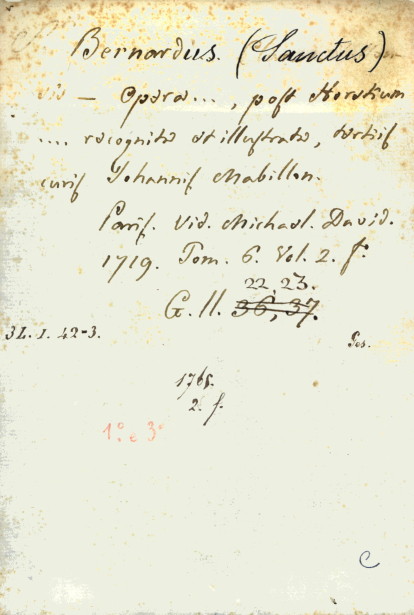 Bernardus. (Sanctus)
— Opera...., post Horstium
.... recognita et illustrata, tertiis
curis Johannis Mabillon.
Paris. Vid. Michael. David.
1719. Tom. 6. Vol. 2. f.
22, 23.
G. 11. 36, 37.
3L. 1. 42-3.
Ges.
2. f.
1º e 3º
C